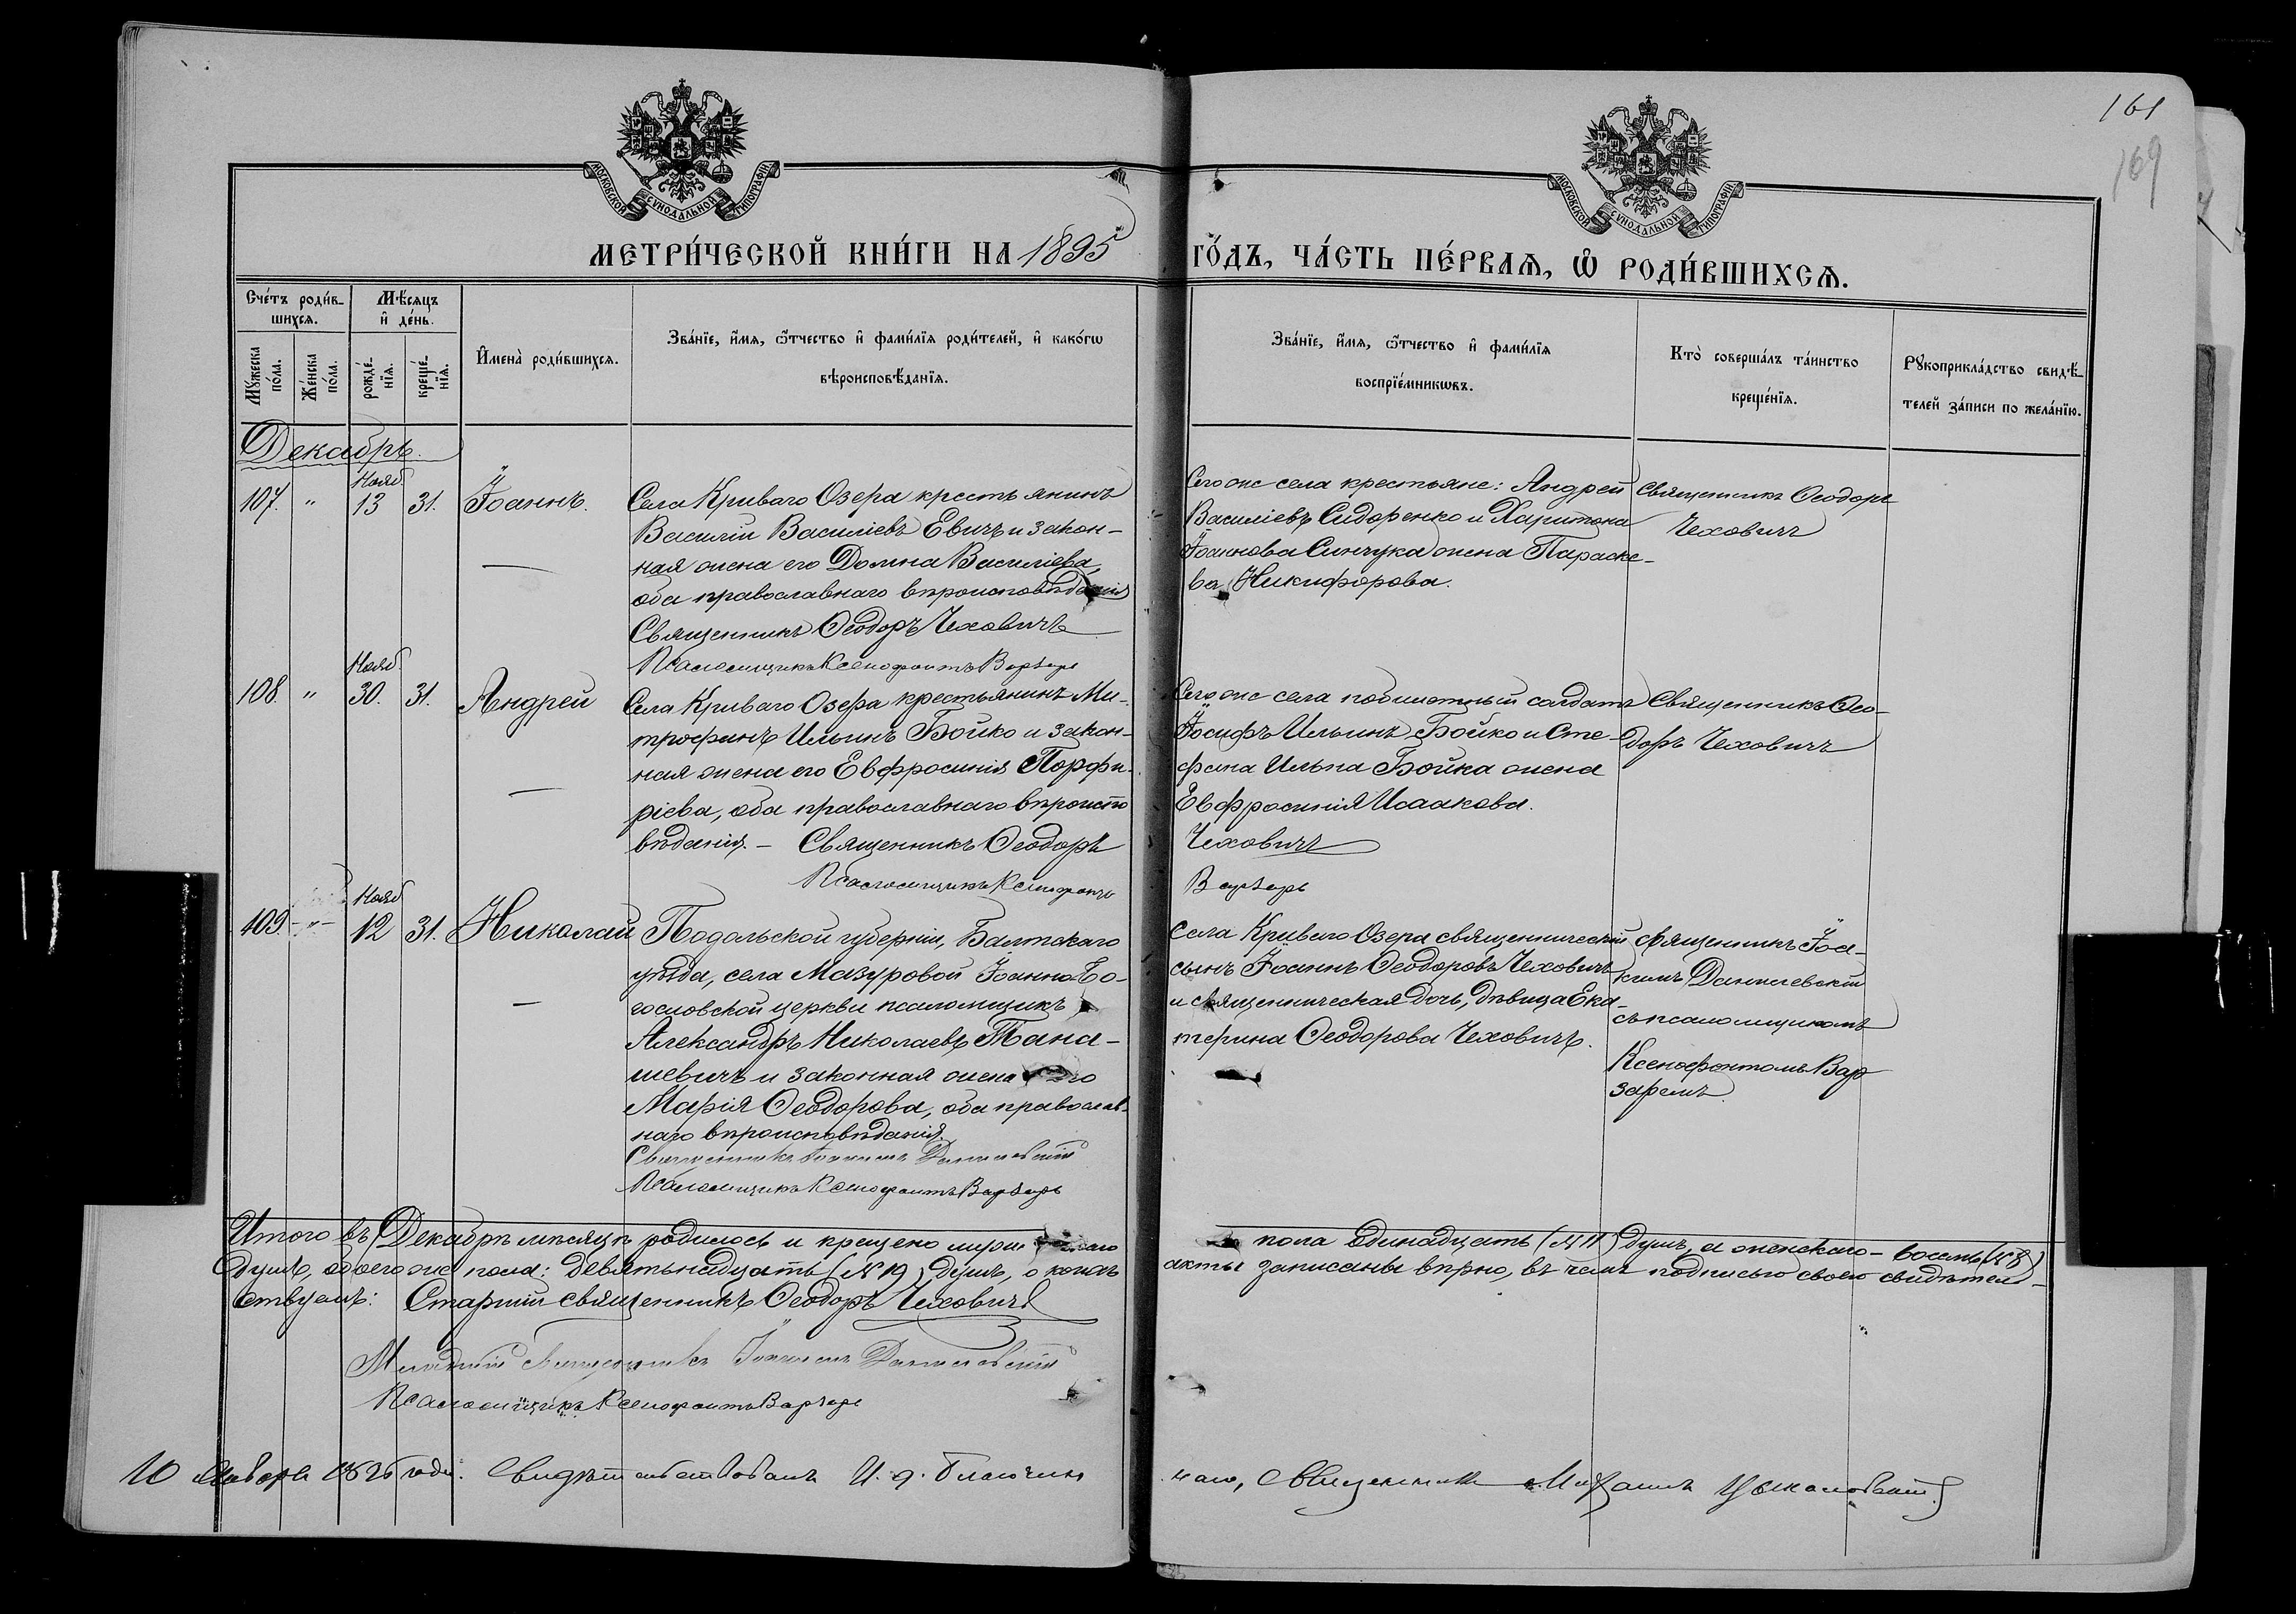 161
169
МОСКОВСКОЙ СѴНОДАЛЬНОЙ ТИПОГРАФІИ
МОСКОВСКОЙ СѴНОДАЛЬНОЙ ТИПОГРАФІИ
МЕТРИ́ЧЕСКОЙ КНИ́ГИ НА 1895 ГО́ДЪ, ЧА́СТЬ ПЕ́РВАѦ, Ѽ РОДИ́ВШИХСѦ.
Сче́тъ роди́в-
шихсѧ.
Мѣ́сѧцъ
и҆ де́нь.
Мꙋ́жеска
по́ла.
Же́нска
по́ла.
рожде́-
нїѧ.
креще́-
нїѧ.
И҆мена̀ роди́вшихсѧ.
Зва́нїе, и҆́мѧ, ѻ҆́тчество и҆ фами́лїѧ роди́телей, и҆ како́гѡ
вѣроисповѣ́данїѧ.
Зва́нїе, и҆́мѧ, ѻ҆́тчество и҆ фами́лїѧ
воспрїе́мникѡвъ.
Кто̀ соверша́лъ та́инство
креще́нїѧ.
Рꙋкоприкла́дство свидѣ́-
телей за́писи по жела́нїю.
Декабрь.
Нояб.
107. " 13 31. Іоаннъ.
Села Криваго Озера крестьянинъ
Василій Василіевъ Евичъ и закон-
ная жена его Домна Василіева,
оба православнаго вѣроисповѣданія
Священникъ Ѳеодоръ Чеховичъ
Псаломщикъ Ксенофонтъ Варзарь
Сего же села крестьяне: Андрей
Василіевъ Сидоренко и Харитона
Іоаннова Синчука жена Параске-
ва Никифорова.
Священникъ Ѳеодоръ
Чеховичъ
Нояб.
108. " 30. 31. Андрей
Села Криваго Озера крестьянинъ Ми-
трофанъ Ильинъ Бойко и закон-
ная жена его Евфросинія Порфи-
ріева, оба православнаго вѣроиспо
вѣданія. - Священникъ Ѳеодоръ
Чеховичъ
Псаломщикъ Ксенофонтъ
Варзарь
Сего же села солдатъ
Іосифъ Ильинъ Бойко и Сте-
фана Ильина Бойка жена
Евфросинія Исаакова.
Священникъ Ѳео-
доръ Чеховичъ
Нояб.
109. " 12 31. Николай
Подольской губерніи, Балтскаго
уѣзда, села Мазуровой Іоанно-Бо-
гословской церкви псаломщикъ
Александръ Николаевъ Тана-
шевичъ и законная жена его
Марія Ѳеодорова, оба православ-
наго вѣроисповѣданія.
Священникъ Іоакимъ Данилевскій
Псаломщикъ Ксенофонтъ Варзарь
Села Криваго Озера священническій
сынъ Іоаннъ Ѳеодоровъ Чеховичъ
и священническая дочь, дѣвица Ека-
терина Ѳеодорова Чеховичъ.
священникъ Іоа-
кимъ Данилевскій
съ псаломщикомъ
Ксенофонтомъ Вар
заремъ.
Итого въ Декабрѣ мѣсяцѣ родилось и крещено пола одинадцать (№ 11) душъ, а женскаго - восемь (№ 8)
душъ, обоего же пола: девятьнадцать (№ 19) душъ, о коихъ акты записаны вѣрно, въ чемъ подписью своею свидѣтель-
ствуемъ: Старшій священникъ Ѳеодоръ Чеховичъ
Младшій священникъ Іоакимъ Данилевскій
Псаломщикъ Ксенофонтъ Варзарь
10 Января 1896 года. Свидѣтельствовалъ И. д. Благочин
наго, Священникъ Михаилъ